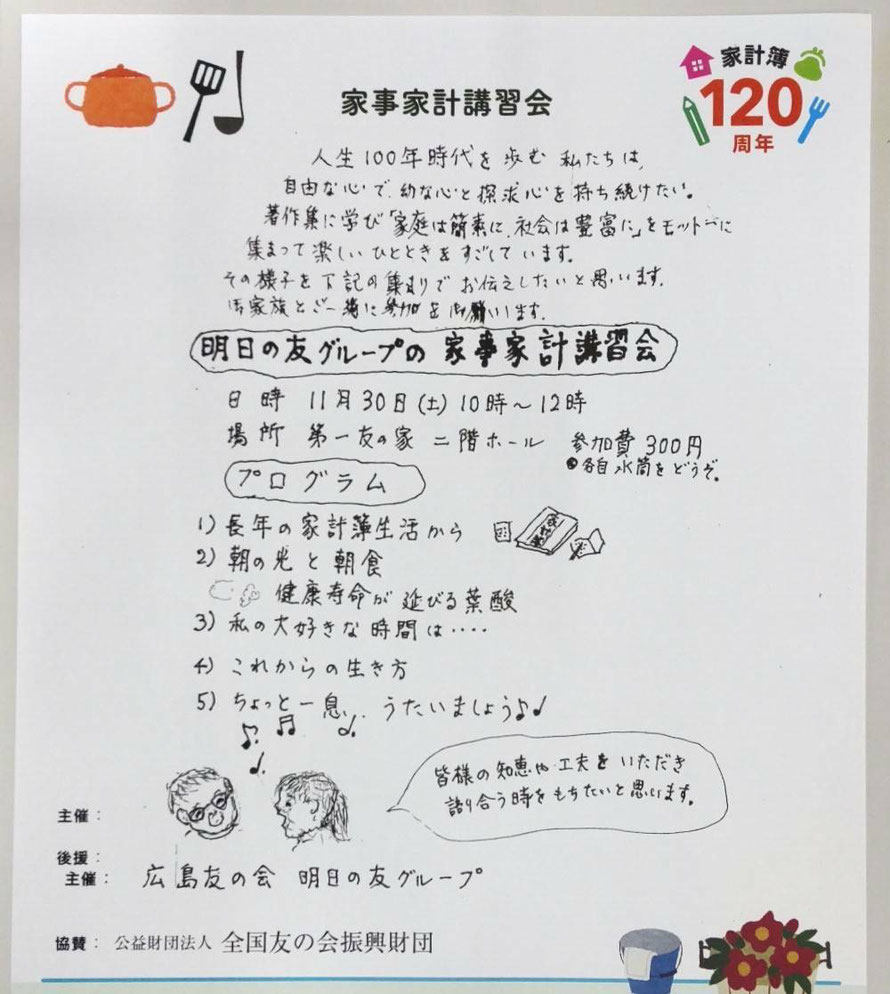 家計簿
120
周年
家事家計講習会
人生100年時代を歩む私たちは、
自由な心で、幼な心と探求心を持ち続けたい。
著作集に学び「家庭は簡素に、社会は豊富に」をモットーに
集まって楽しいひとときをすごしています。
その様子を下記の集まりでお伝えしたいと思います。
御家族とご一緒に参加をお願いします。
明日の友グループの 家事家計講習会
日時 11月30日(土)10時~12時
場所 第一友の家 二階ホール 参加費 300円
●各自水筒をどうぞ。
プログラム
1) 長年の家計簿生活から
2) 朝の光と朝食
健康寿命が延びる葉酸
3) 私の大好きな時間は‥‥
4) これからの生き方
5) ちょっと一息、、うたいましょう♪♩
皆様の知恵や工夫をいただき
語り合う時をもちたいと思います。
主催:
後援:
主催: 広島友の会 明日の友グループ
協賛: 公益財団法人 全国友の会振興財団